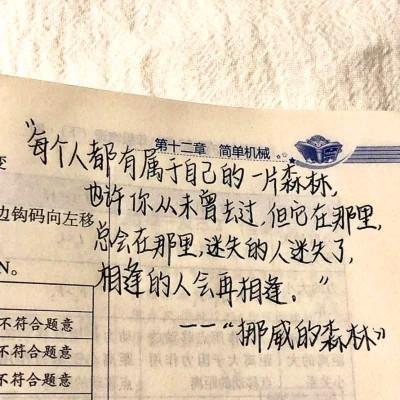 第十二章 简单机械
"每个人都有属于自己的一片森林,
也许你从未曾去过,但它在那里,
边钩码向左移
总会在那里,迷失的人迷失了,
N。
相逢的人会再相逢。"
——"挪威的森林》
不符合题意
不符合题意
不符合题意